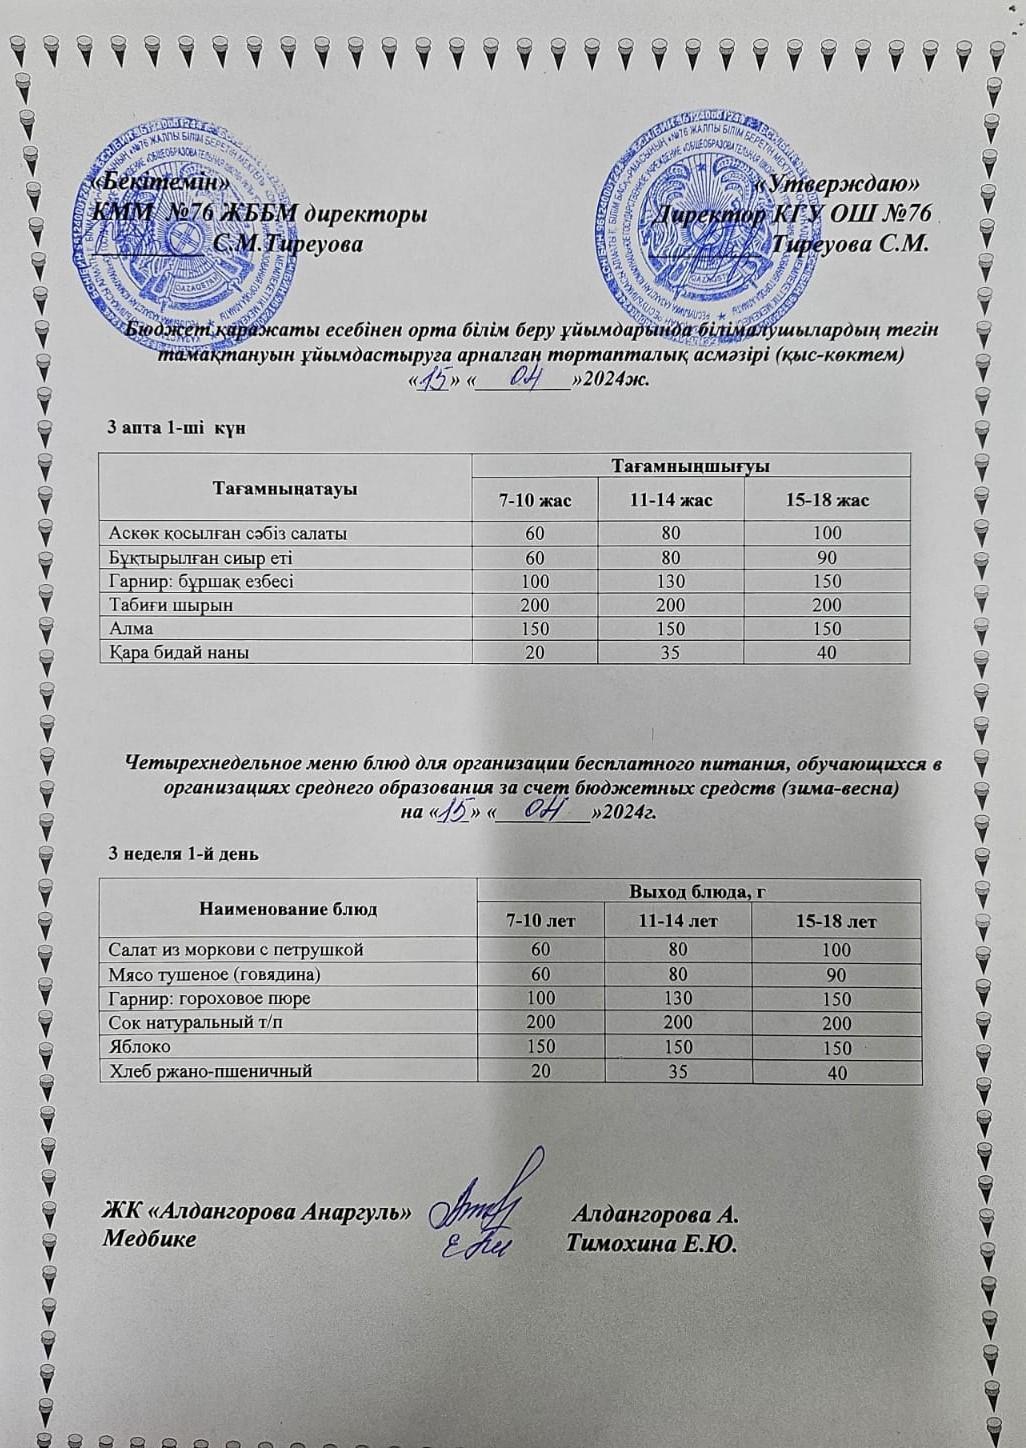 «Бекітемін»
КММ №76 ЖББМ директоры
С.М.Тиреуова
«Утверждаю»
Директор КГУ ОШ №76
Тиреуова С.М.
Бюджет қаражаты есебінен орта білім беру ұйымдарында білімалушылардың тегін
тамақтануын ұйымдастыруға арналған төртапталық асмәзірі (қыс-көктем)
«15» «04»2024ж.
3 апта 1-ші күн
Тағамныңатауы
Тағамныңшығуы
7-10 жас 11-14 жас 15-18 жас
Аскөк қосылған сәбіз салаты 60 80 100
Бұқтырылған сиыр еті 60 80 90
Гарнир: бұршақ езбесі 100 130 150
Табиғи шырын 200 200 200
Алма 150 150 150
Қара бидай наны 20 35 40
Четырехнедельное меню блюд для организации бесплатного питания, обучающихся в
организациях среднего образования за счет бюджетных средств (зима-весна)
на «15» «04»2024г.
3 неделя 1-й день
Наименование блюд
Выход блюда, г
7-10 лет 11-14 лет 15-18 лет
Салат из моркови с петрушкой 60 80 100
Мясо тушеное (говядина) 60 80 90
Гарнир: гороховое пюре 100 130 150
Сок натуральный т/п 200 200 200
Яблоко 150 150 150
Хлеб ржано-пшеничный 20 35 40
ЖК «Алдангорова Анаргуль» Алдангорова А.
Медбике Тимохина Е.Ю.